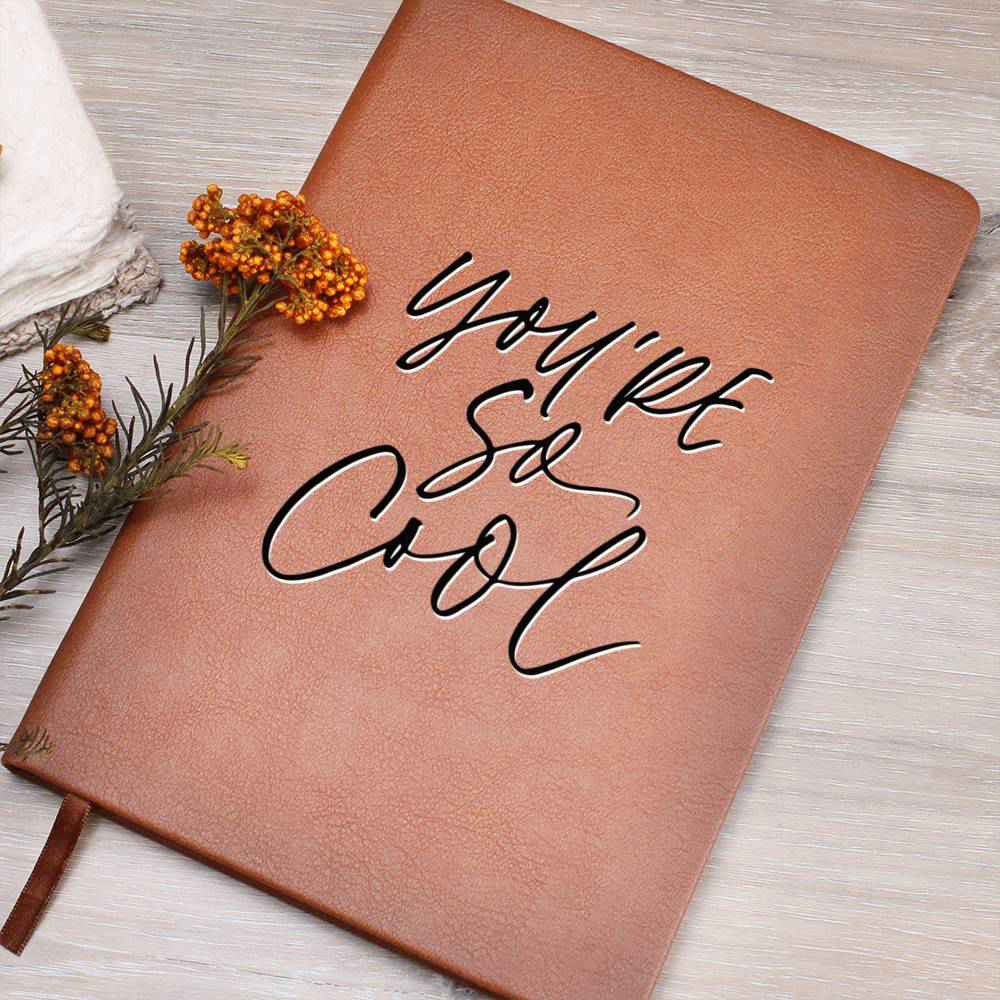 you're
So
Cool